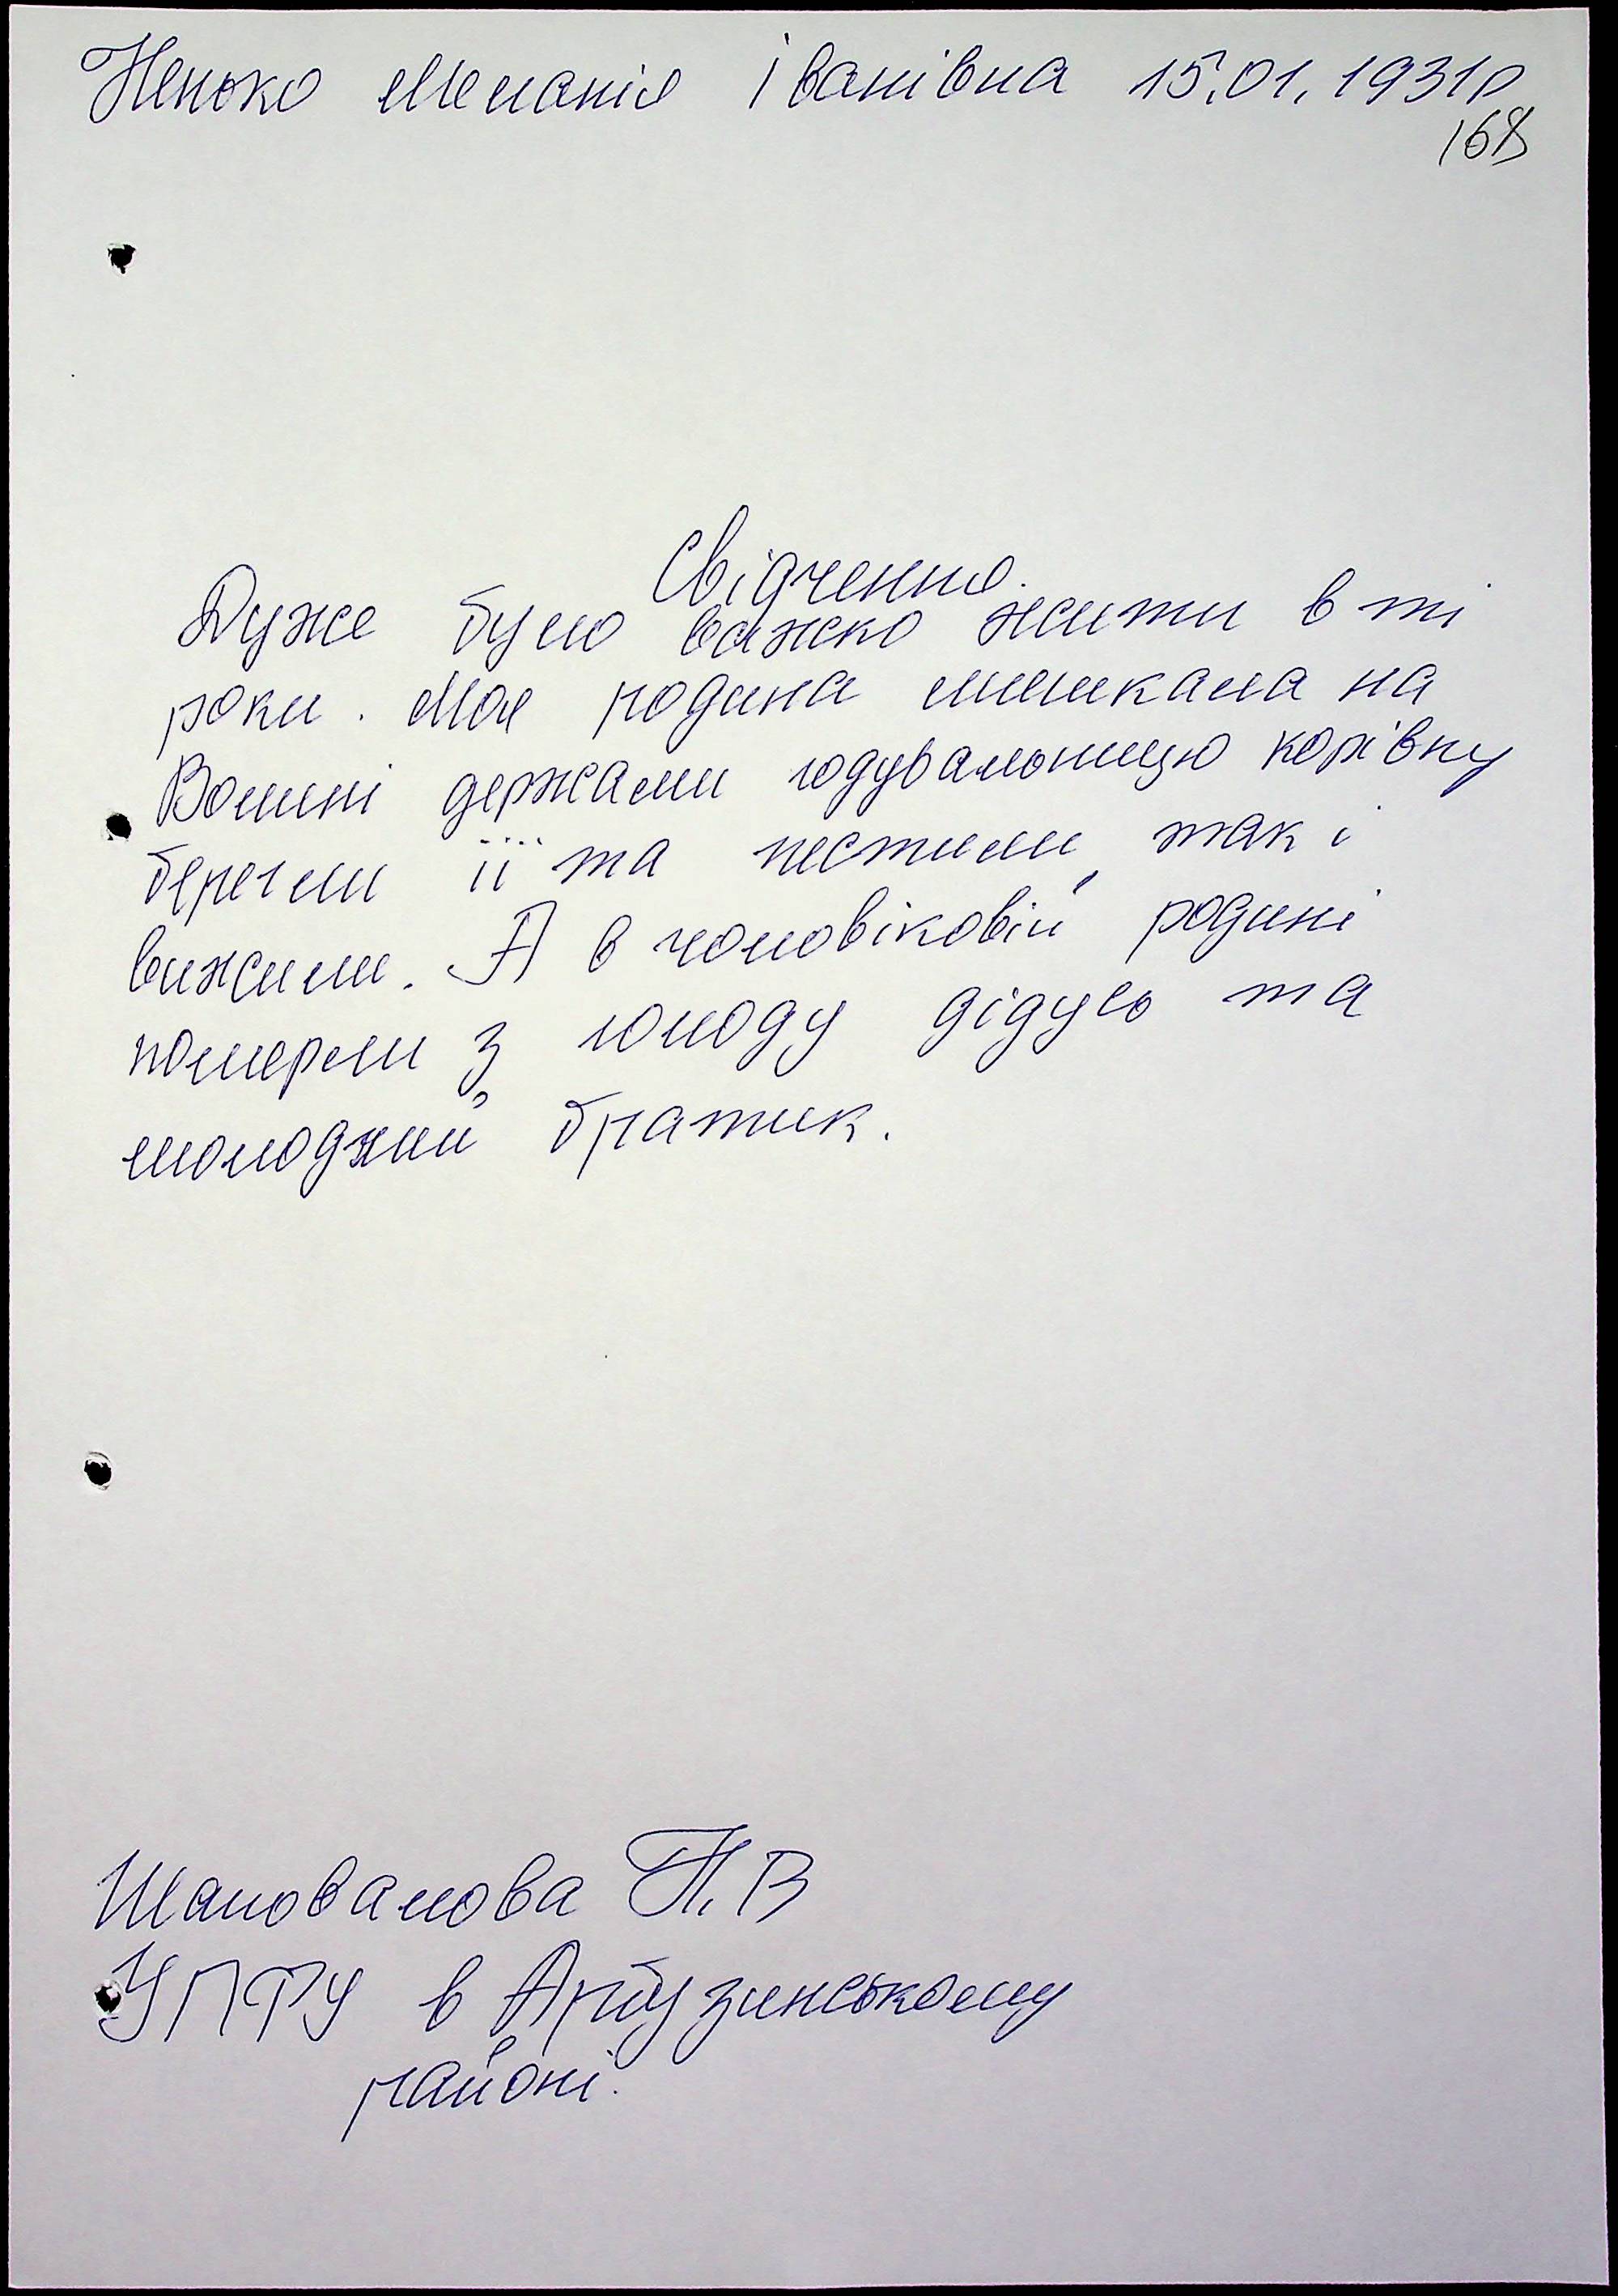 Ненько Меланія Іванівна 15.01.1931р
168
Свідчення.
Дуже було важко жити в ті
роки. Моя родина мешкала на
Волині держали годувальницю корівку
берегли її та пестили, так і
вижили. А в чоловіковій родині
померли з голоду дідусь та
молодший братик.
Шаповалова Т. В
УПФУ в Арбузинському
районі.